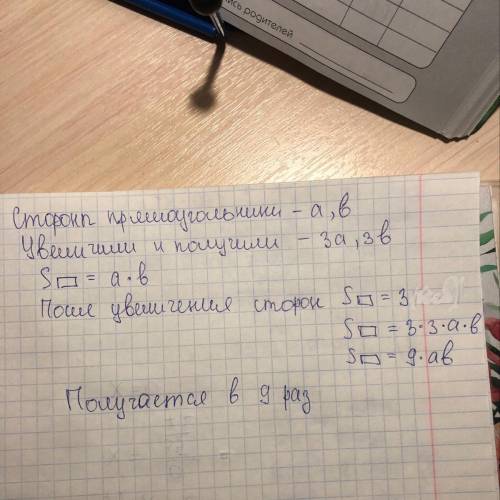 родителей
Стороны прямоугольники - а, в
Увеличили и получили - 3а, 3в
S▭ = а·в
После увеличения сторон S▭ = 3
S▭ = 3·3·а·в
S▭ = 9·ав
Получается в 9 раз